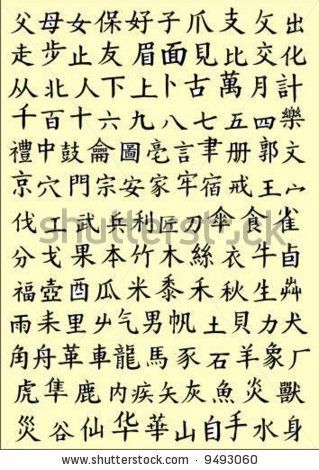 父母女保好子爪支攵出
走步止友眉面見比交化
从北人下上卜古萬月計
千百十六九八七五四樂
禮中鼓龠圖毫言聿册郭文
京穴門宗安家牢宿戒王宀
伐工武兵利匠刀傘食雀
分戈果本竹木絲衣牛卣
福壺酉瓜米黍禾秋生艸
雨耒里屮气男帆土貝力犬
角舟革車龍馬豕石羊象厂
虎隼鹿内疾矢灰魚炎獸
災谷仙华華山自手水身
shutterstock
www.shutterstock.com · 9493060